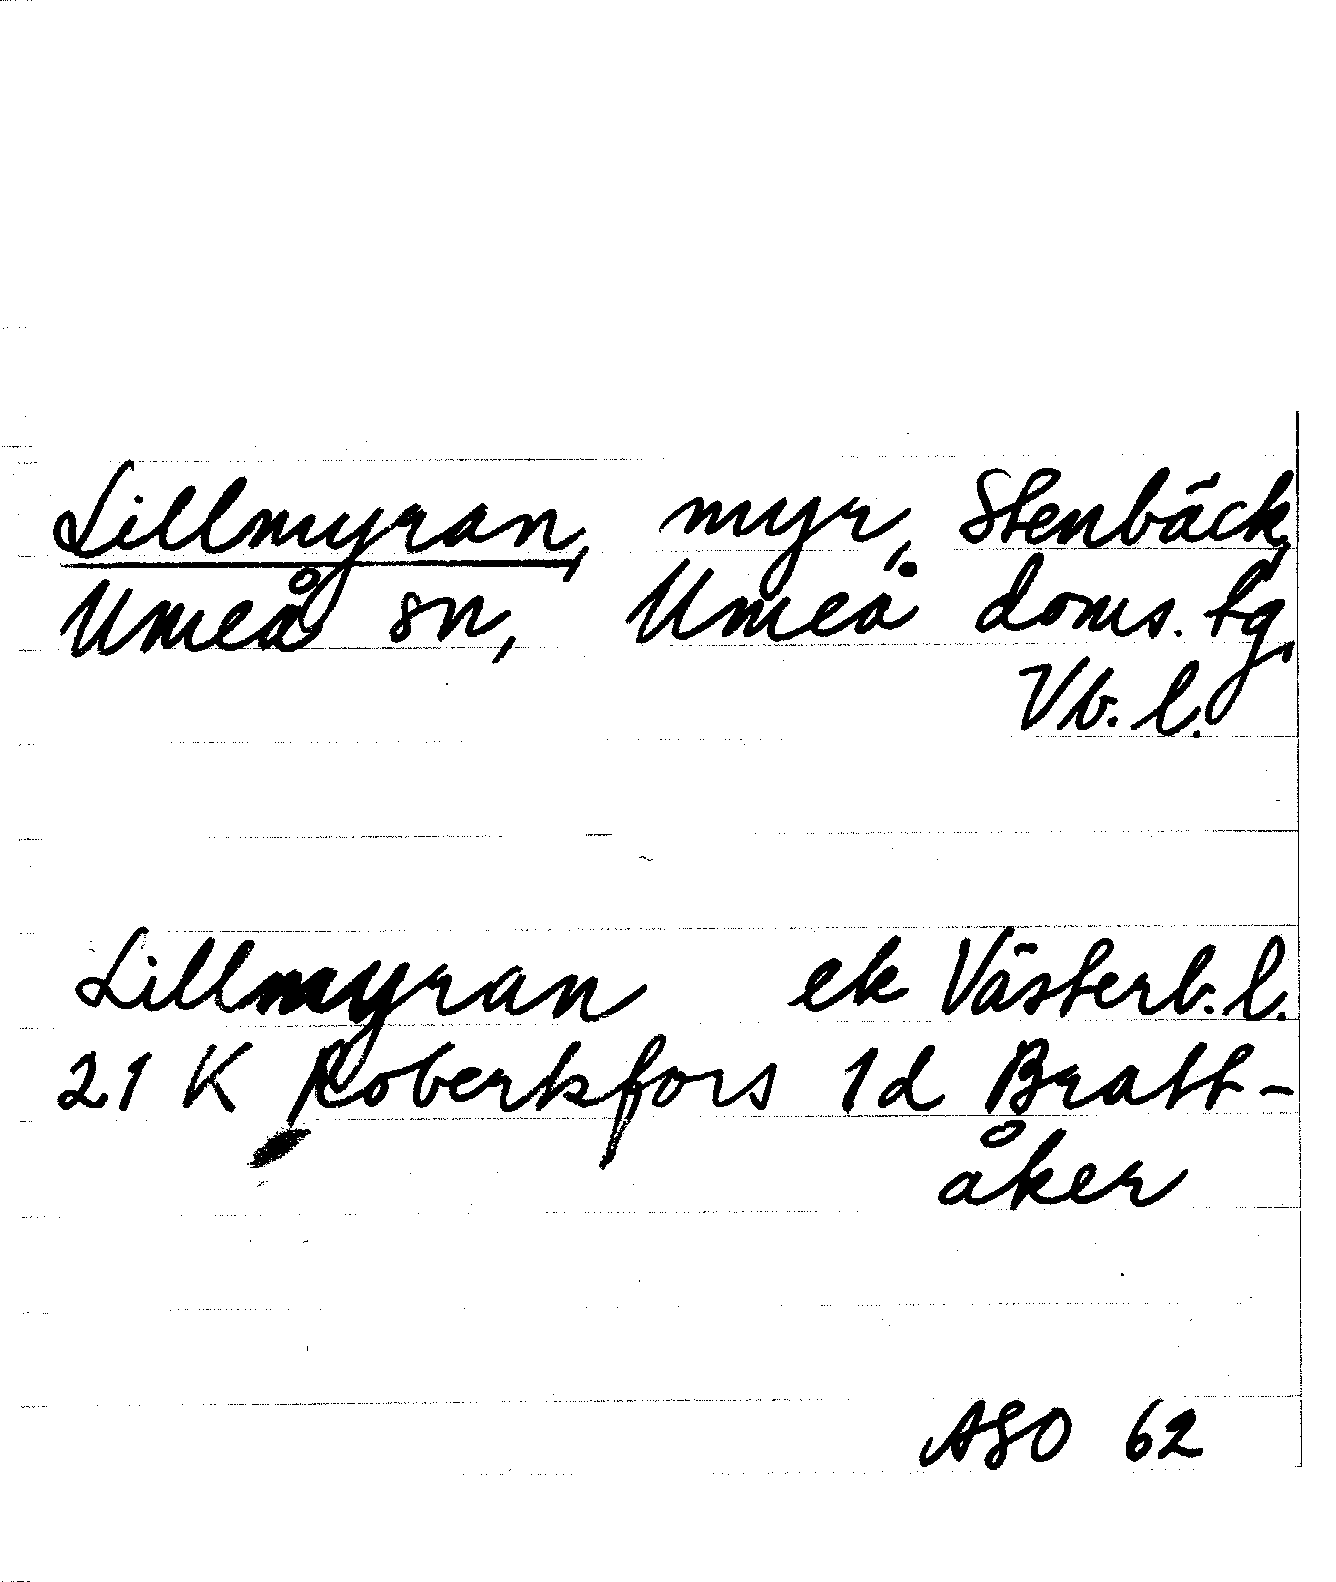 Lillmyran, myr, Stenbäck,
Umeå sn, Umeå doms. tg,
Vb. l.
Lillmyran ek Västerb. l.
21 K Robertsfors 1d Bratt-
åker
ASO 62